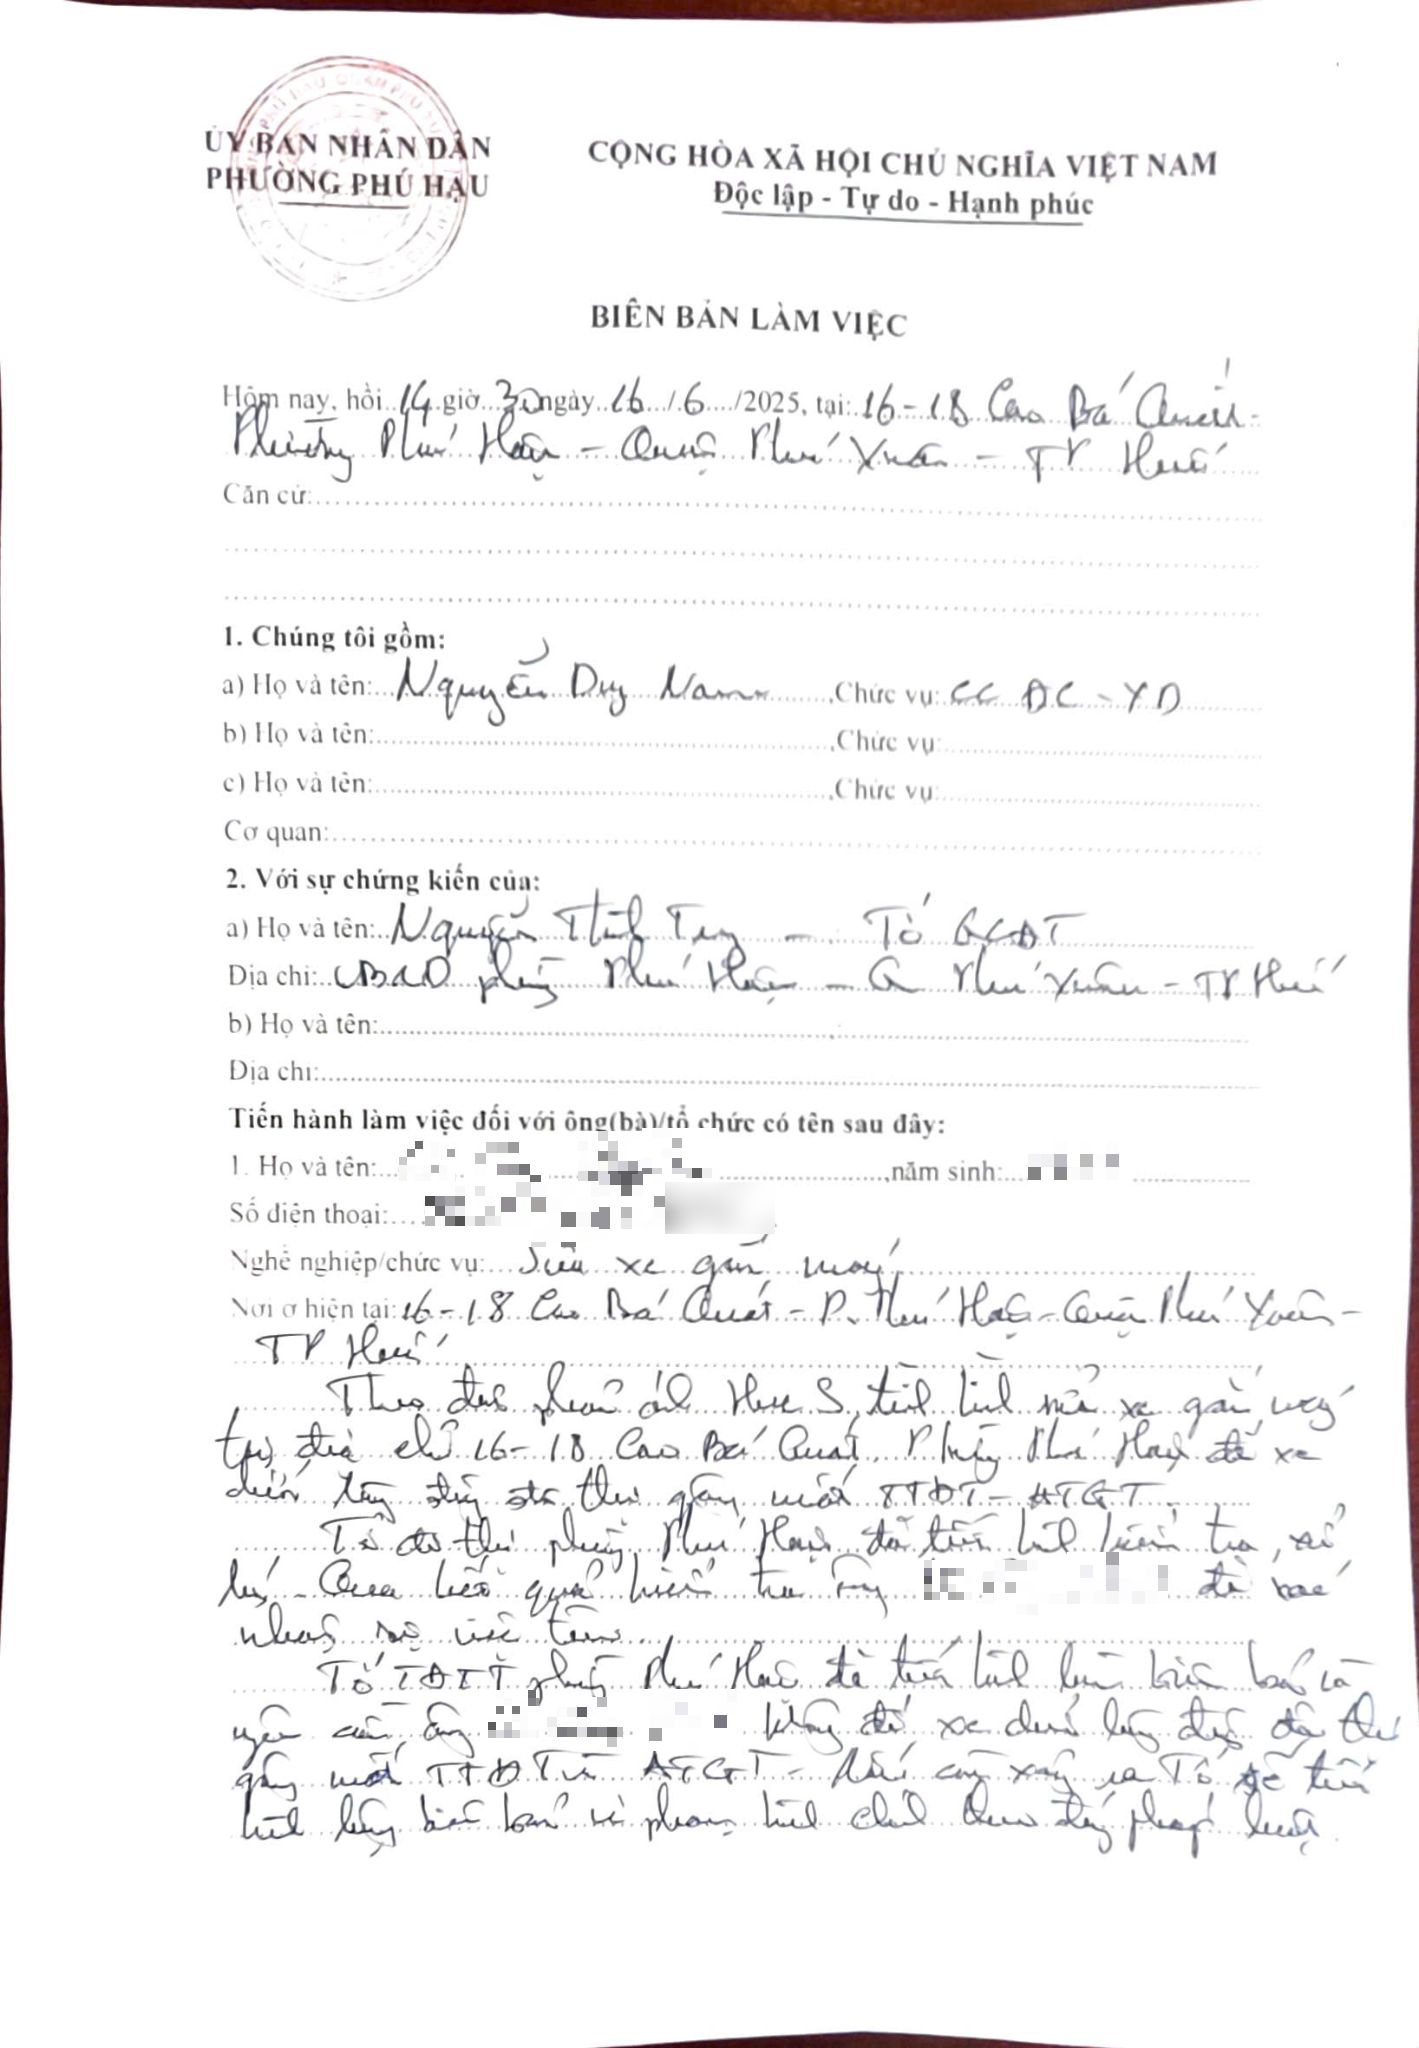 ỦY BAN NHÂN DÂN
PHƯỜNG PHÚ HẬU
CỘNG HÒA XÃ HỘI CHỦ NGHĨA VIỆT NAM
Độc lập - Tự do - Hạnh phúc
BIÊN BẢN LÀM VIỆC
Hôm nay, hồi 14 giờ 30 ngày 16/6/2025, tại: 16-18 Cao Bá Quát -
Phường Phú Hậu - Quận Phú Xuân - TP Huế
Căn cứ:
1. Chúng tôi gồm:
a) Họ và tên: Nguyễn Duy Nam, Chức vụ: CC ĐC - XD
b) Họ và tên: , Chức vụ:
c) Họ và tên: , Chức vụ:
Cơ quan:
2. Với sự chứng kiến của:
a) Họ và tên: Nguyễn - Tổ
Địa chỉ: UBND phường Phú Hậu - Q Phú Xuân - TP Huế
b) Họ và tên:
Địa chỉ:
Tiến hành làm việc đối với ông(bà)/tổ chức có tên sau đây:
1. Họ và tên: , năm sinh:
Số điện thoại:
Nghề nghiệp/chức vụ: Sửa xe gắn máy
Nơi ở hiện tại: 16-18 Cao Bá Quát - P. Phú Hậu - Quận Phú Xuân -
TP Huế
Theo phản ánh Hue S, tình hình sửa xe gắn máy
tại địa chỉ 16-18 Cao Bá Quát, Phường Phú Hậu để xe
gây mất TTĐT - ATGT.
Tổ đô thị phường Phú Hậu đã tiến hành kiểm tra, xử
lý. Qua kết quả kiểm tra ông đã
nhận sự việc trên.
Tổ phường Phú Hậu đã tiến hành lập biên bản và
yêu cầu ông không để xe
gây mất TTĐT và ATGT. Nếu còn xảy ra Tổ sẽ tiến
hành lập biên bản và phạt hành chính theo đúng pháp luật.